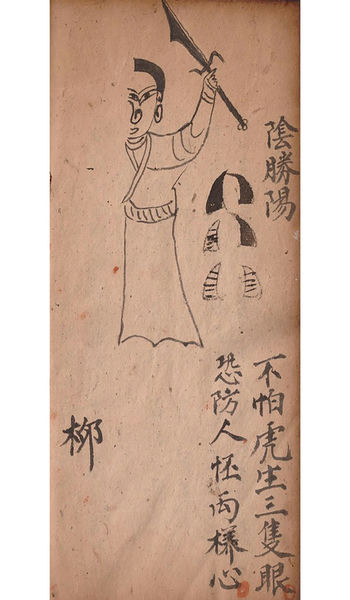 陰勝陽
不怕虎生三隻眼
恐防人怌両樣心
柳